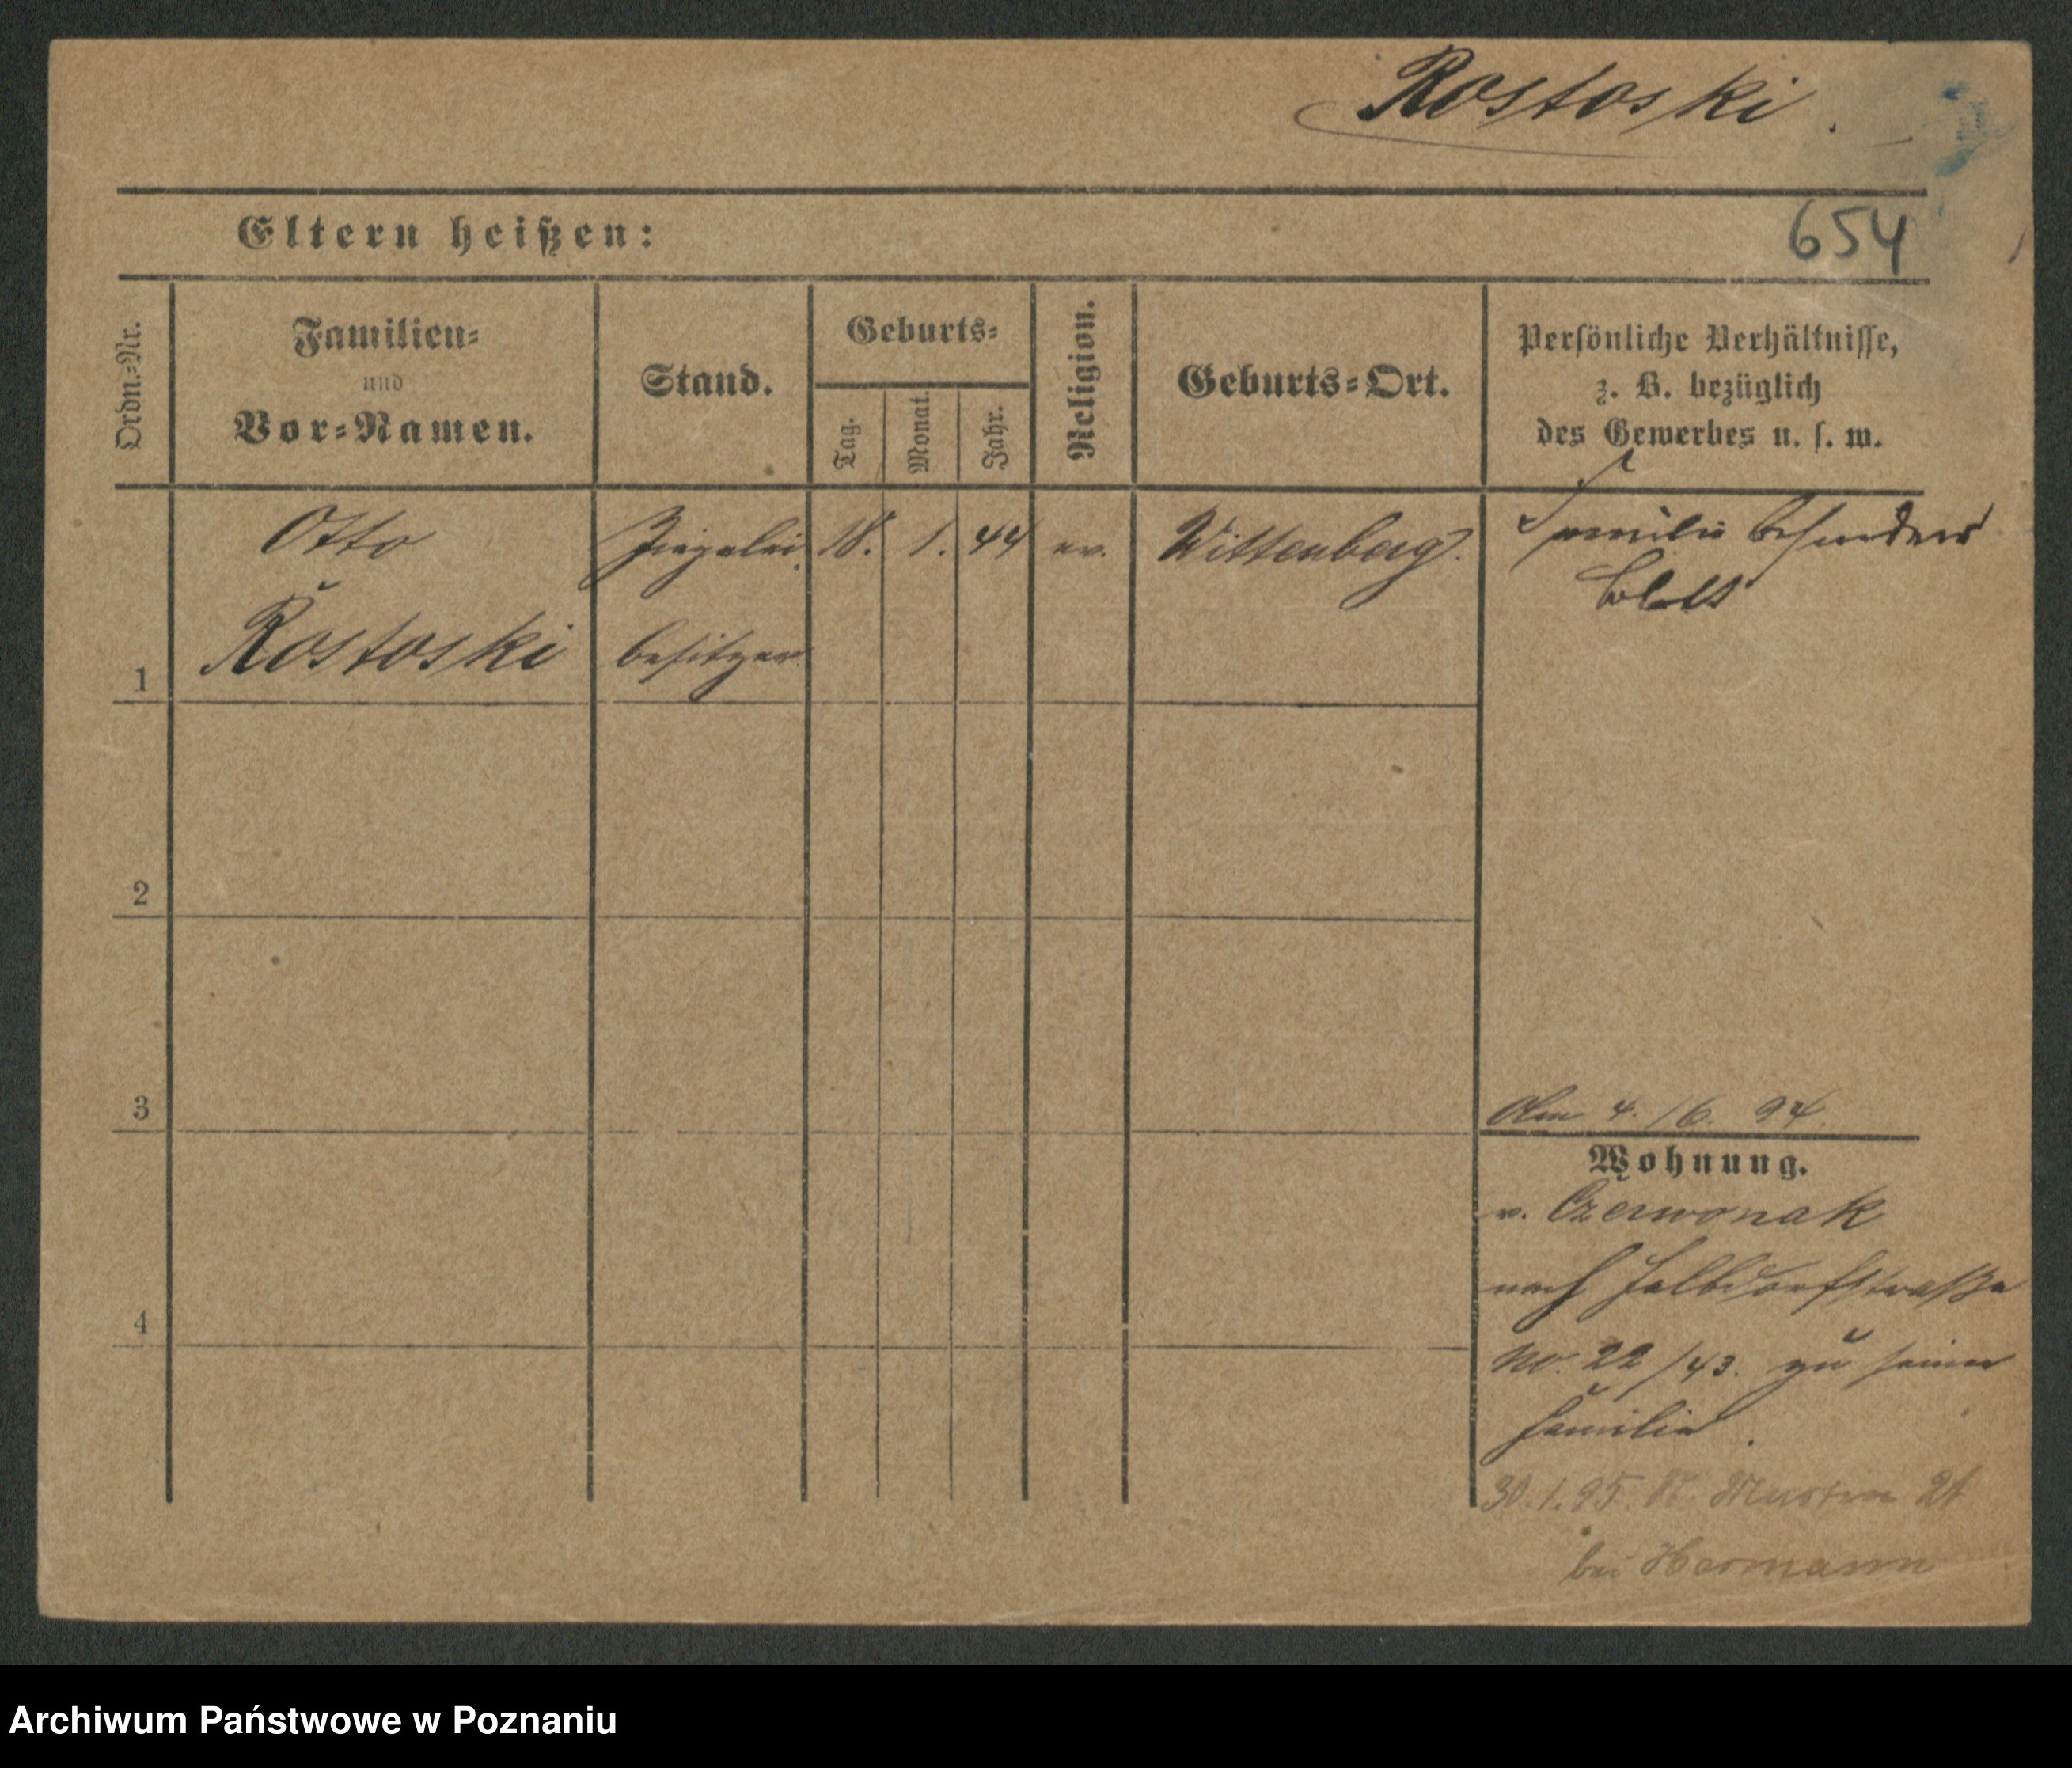 Rostoski.
Eltern heißen:
654
Ordn.-Nr.
Familien-
und
Vor-Namen.
Stand.
Geburts-
Tag.
Monat.
Jahr.
Religion.
Geburts-Ort.
Persönliche Verhältnisse,
z. B. bezüglich
des Gewerbes u. s. w.
Otto
Rostoski
Ziegelei
besitzer
18. 1. 44
ev.
Wittenberg.
Familie besonderes
Blatt
1
2
3
4
Am 4./6. 94.
Wohnung.
v. Czerwonak
nach Halbdorfstraße
No. 22/43. zu seiner
Familie.
30.1.95. 21
bei Hermann
Archiwum Państwowe w Poznaniu